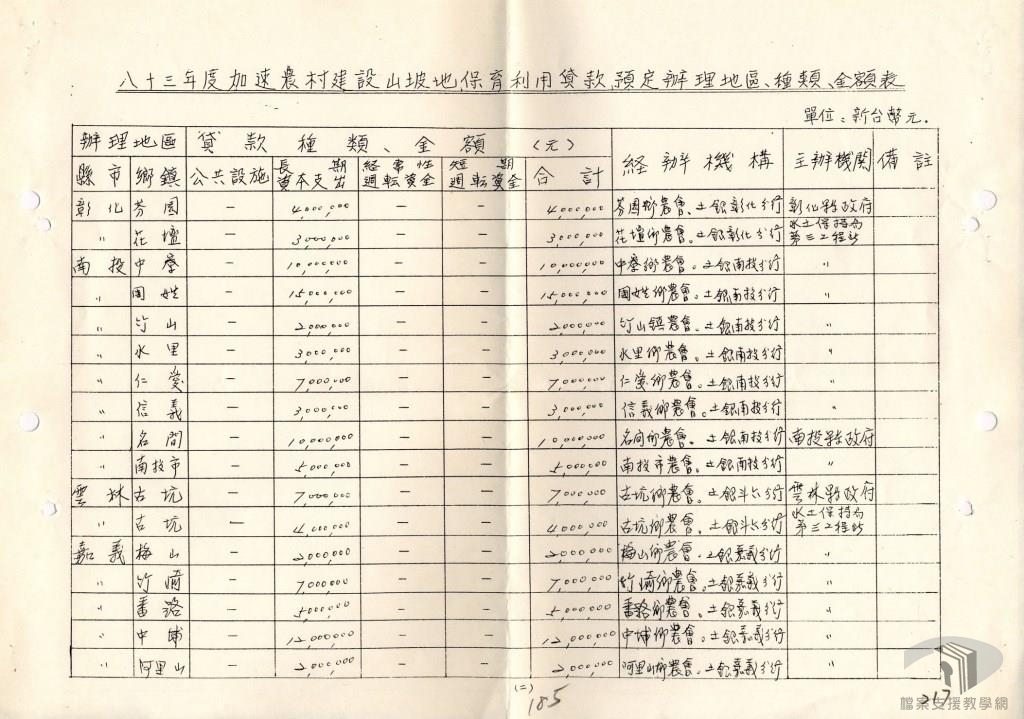 八十三年度加速農村建設山坡地保育利用貸款預定辦理地區、種類、金額表
單位：新台幣元.
辦理地區 貸款種類、金額(元) 経辦機構 主辦機関 備註
縣市 鄉鎮 公共設施 長期資本支出 経常性週転資金 短期週転資金 合計
彰化 芬園 — 4,000,000 — — 4,000,000 芬園鄉農會、土銀彰化分行 彰化縣政府
〃 花壇 — 3,000,000 — — 3,000,000 花壇鄉農會、土銀彰化分行 水土保持局第三工程所
南投 中寮 — 10,000,000 — — 10,000,000 中寮鄉農會、土銀南投分行 〃
〃 國姓 — 15,000,000 — — 15,000,000 國姓鄉農會、土銀南投分行 〃
〃 竹山 — 2,000,000 — — 2,000,000 竹山鎮農會、土銀南投分行 〃
〃 水里 — 3,000,000 — — 3,000,000 水里鄉農會、土銀南投分行 〃
〃 仁愛 — 7,000,000 — — 7,000,000 仁愛鄉農會、土銀南投分行 〃
〃 信義 — 3,000,000 — — 3,000,000 信義鄉農會、土銀南投分行 〃
〃 名間 — 10,000,000 — — 10,000,000 名間鄉農會、土銀南投分行 南投縣政府
〃 南投市 — 5,000,000 — — 5,000,000 南投市農會、土銀南投分行 〃
雲林 古坑 — 7,000,000 — — 7,000,000 古坑鄉農會、土銀斗六分行 雲林縣政府
〃 古坑 — 4,000,000 — — 4,000,000 古坑鄉農會、土銀斗六分行 水土保持局第三工程所
嘉義 梅山 — 2,000,000 — — 2,000,000 梅山鄉農會、土銀嘉義分行 〃
〃 竹崎 — 7,000,000 — — 7,000,000 竹崎鄉農會、土銀嘉義分行 〃
〃 番路 — 5,000,000 — — 5,000,000 番路鄉農會、土銀嘉義分行 〃
〃 中埔 — 12,000,000 — — 12,000,000 中埔鄉農會、土銀嘉義分行 〃
〃 阿里山 — 2,000,000 — — 2,000,000 阿里山鄉農會、土銀嘉義分行 〃
(二)
185
217
檔案支援教學網